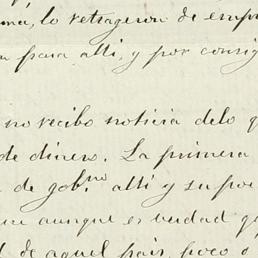 ma, lo retrageron de empr
para alli, y por consig
no recibo noticia delo q
de dinero. La primera
de gob.no alli y supoe
aunque es verdad q
de aquel pais, poco ó